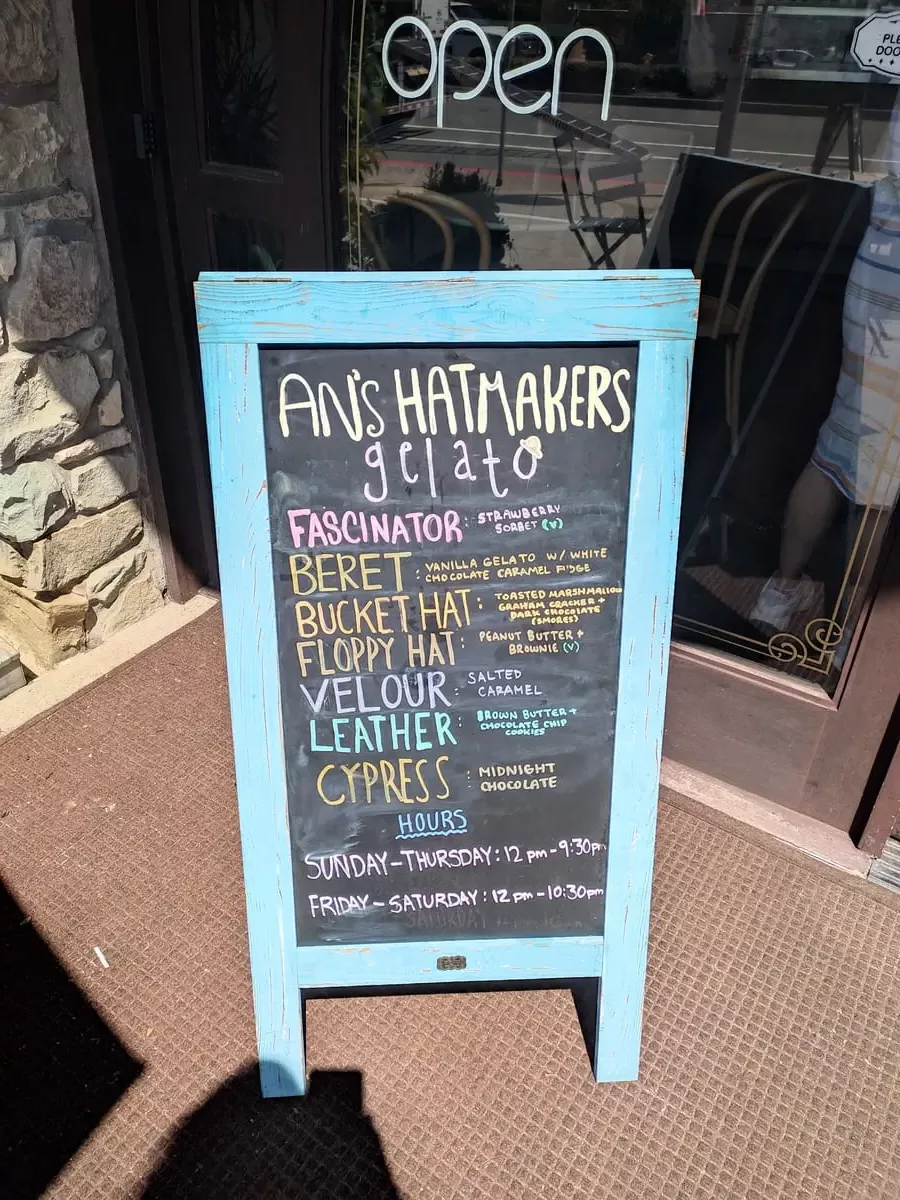 open
PLE
DOO
AN'S HATMAKERS
gelato
FASCINATOR : STRAWBERRY
SORBET (V)
BERET : VANILLA GELATO W/ WHITE
CHOCOLATE CARAMEL FUDGE
BUCKET HAT : TOASTED MARSHMALLOW
GRAHAM CRACKER +
DARK CHOCOLATE
(SMORES)
FLOPPY HAT : PEANUT BUTTER +
BROWNIE (V)
VELOUR : SALTED
CARAMEL
LEATHER : BROWN BUTTER +
CHOCOLATE CHIP
COOKIES
CYPRESS : MIDNIGHT
CHOCOLATE
HOURS
SUNDAY-THURSDAY: 12 pm-9:30pm
FRIDAY-SATURDAY: 12 pm-10:30pm